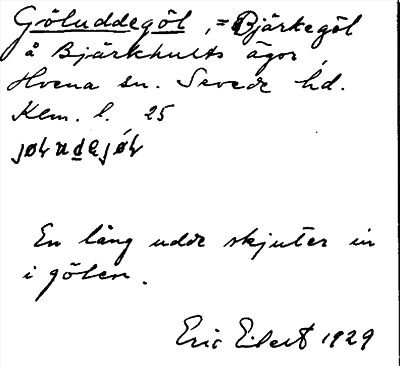 Göluddegöl, = Bjärkegöl
å Bjärkhults ägor,
Hvena sn. Sevede hd.
Kem. l. 25
En lång udde skjuter in
i gölen.
Eric Elert 1929